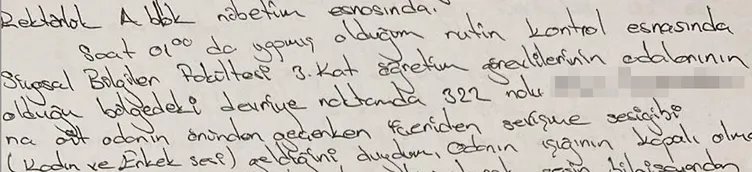 Rektörlük A blok nöbetim esnasında.
Saat 01⁰⁰ da yapmış olduğum rutin kontrol esnasında
Siyasal Bilgiler Fakültesi 3. kat öğretim görevlilerinin odalarının
olduğu bölgedeki devriye noktamda 322 nolu
na ait odanın önünden geçerken içeriden sevişme sesi gibi
(Kadın ve Erkek sesi) geldiğini duydum, odanın ışığının kapalı
bilgisayardan